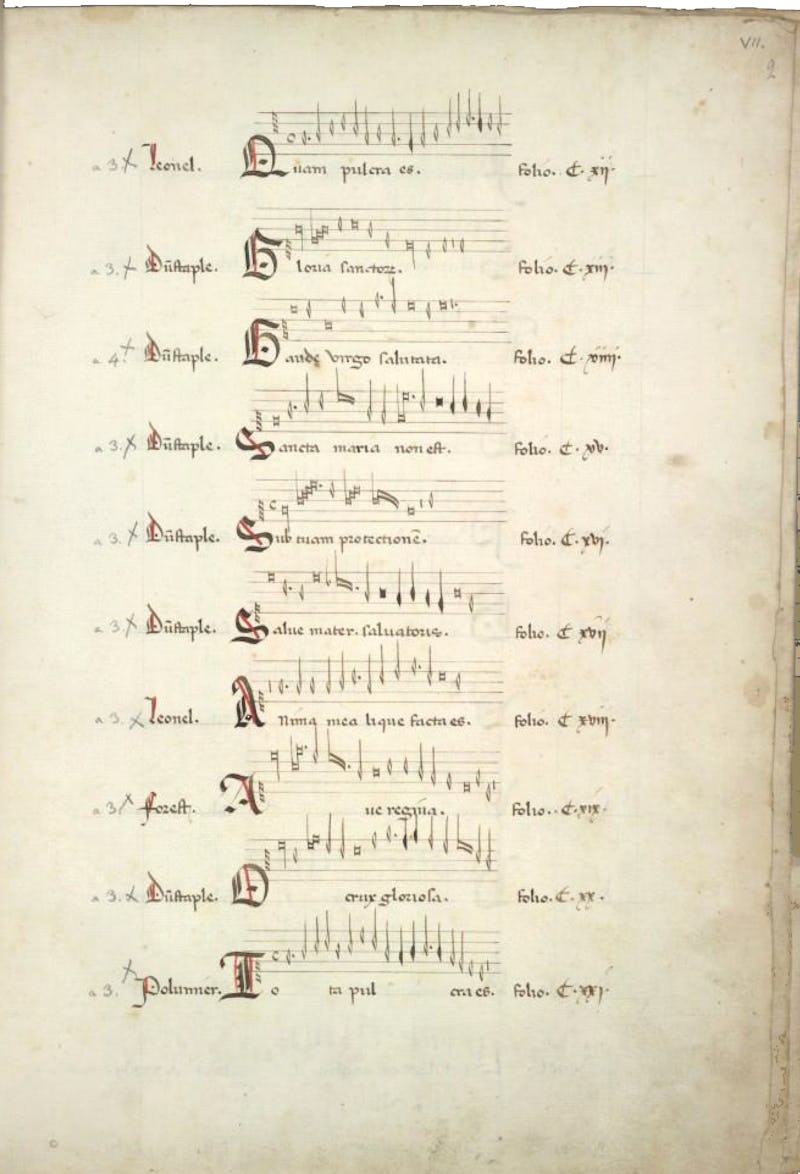 VII.
2
a 3. Leonel. Quam pulcra es. folio. C. xij.
a 3. Dūstaple. Gloria sanctorꝝ. folio. C. xiij.
a 4 Dūstaple. Gaude virgo salutata. folio. C. xiiij.
a 3. Dūstaple. Sancta maria non est. folio. C. xv.
a 3. Dūstaple. Sub tuam protectionē. folio. C. xvj.
a 3. Dūstaple. Salue mater. saluatoris. folio. C xvij
a 3. Leonel. Anima mea lique facta es. folio. C xviij.
a 3 forest. Aue regina. folio. C. xix.
a 3. Dūstaple. O crux gloriosa. folio. C. xx.
a 3. Polumier. To ta pul cra es. folio. C. xxj.